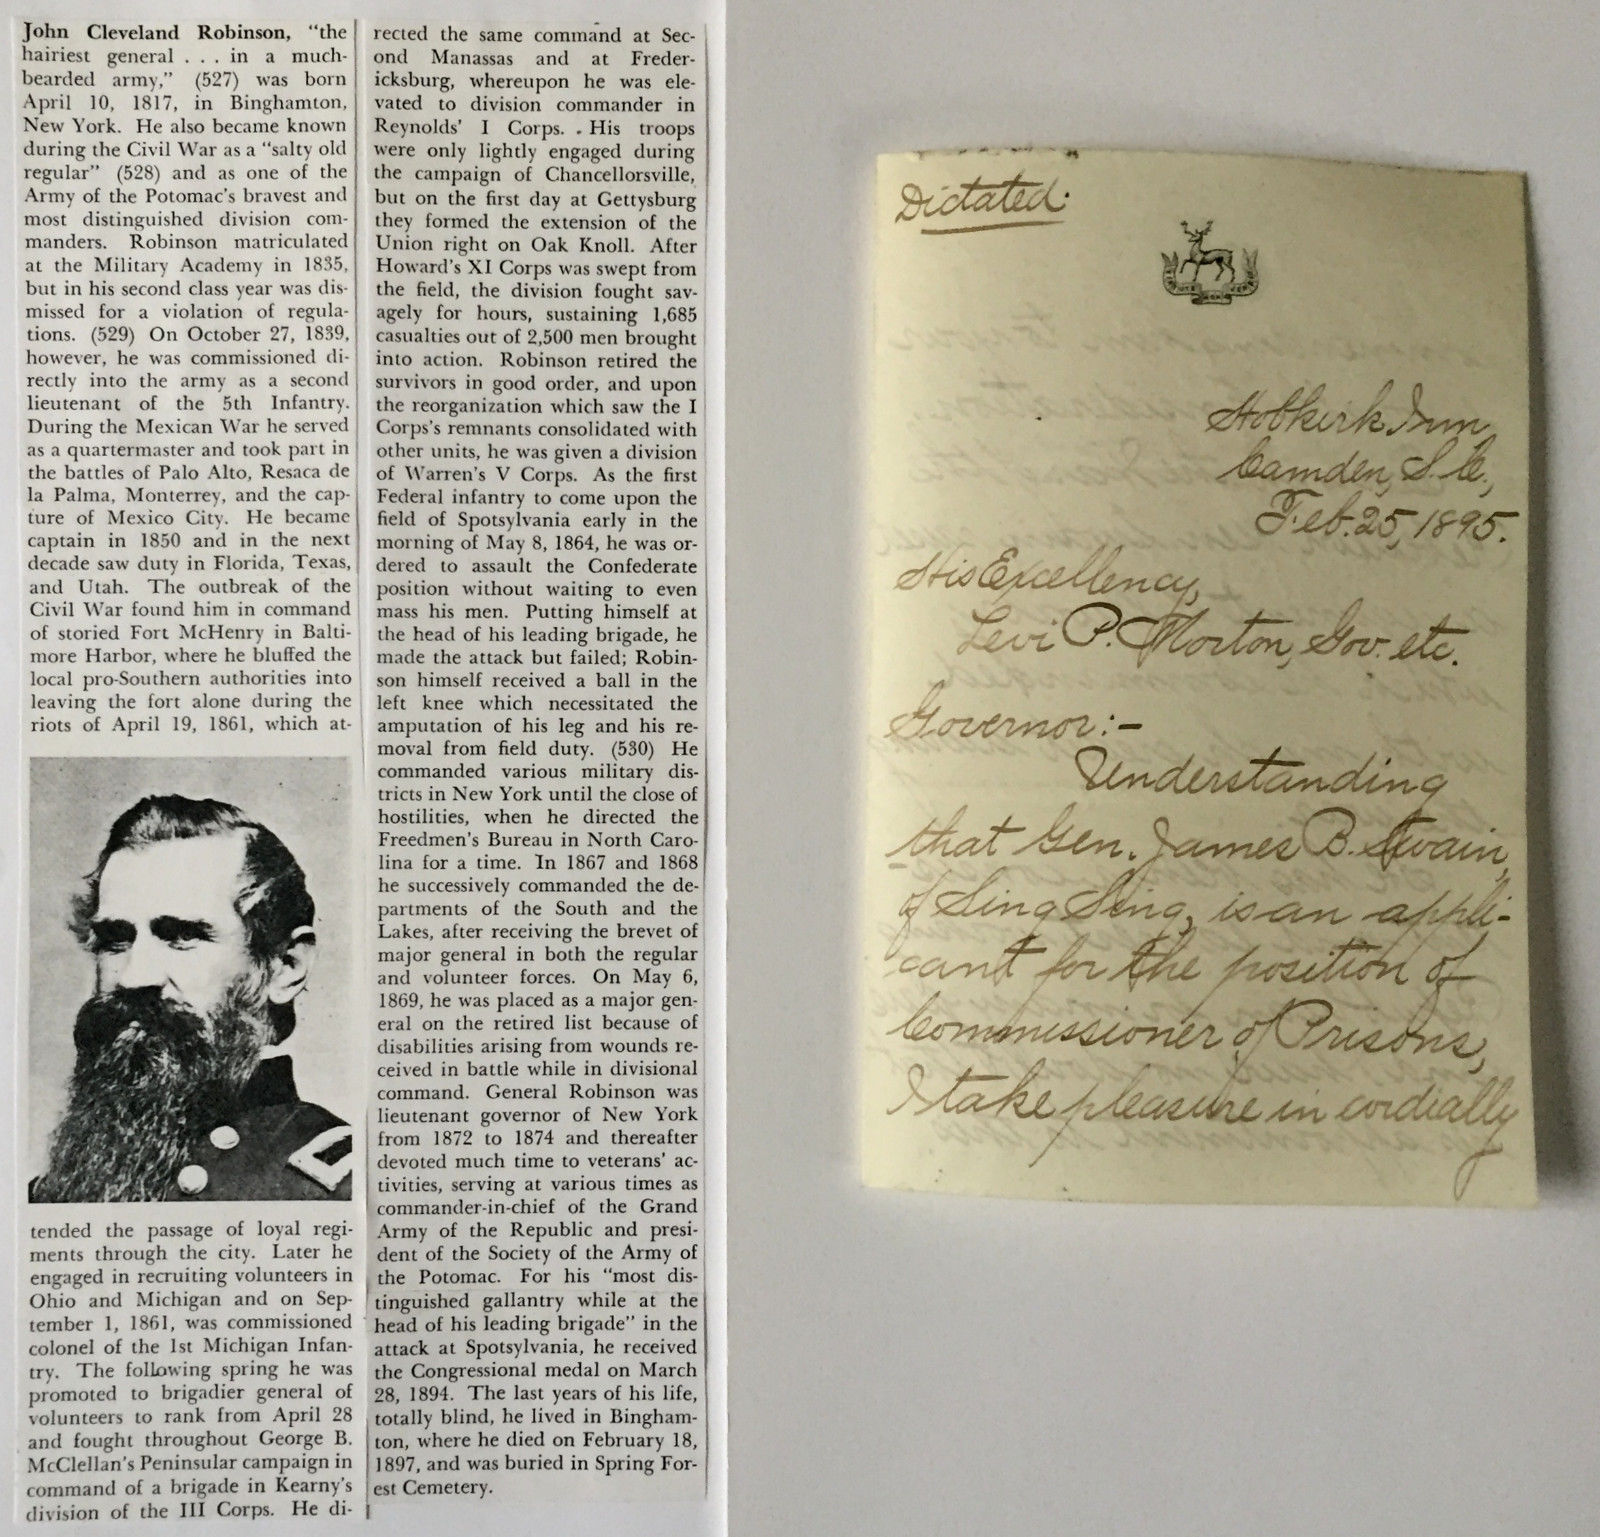 John Cleveland Robinson, "the
hairiest general . . . in a much-
bearded army," (527) was born
April 10, 1817, in Binghamton,
New York. He also became known
during the Civil War as a "salty old
regular" (528) and as one of the
Army of the Potomac's bravest and
most distinguished division com-
manders. Robinson matriculated
at the Military Academy in 1835,
but in his second class year was dis-
missed for a violation of regula-
tions. (529) On October 27, 1839,
however, he was commissioned di-
rectly into the army as a second
lieutenant of the 5th Infantry.
During the Mexican War he served
as a quartermaster and took part in
the battles of Palo Alto, Resaca de
la Palma, Monterrey, and the cap-
ture of Mexico City. He became
captain in 1850 and in the next
decade saw duty in Florida, Texas,
and Utah. The outbreak of the
Civil War found him in command
of storied Fort McHenry in Balti-
more Harbor, where he bluffed the
local pro-Southern authorities into
leaving the fort alone during the
riots of April 19, 1861, which at-
tended the passage of loyal regi-
ments through the city. Later he
engaged in recruiting volunteers in
Ohio and Michigan and on Sep-
tember 1, 1861, was commissioned
colonel of the 1st Michigan Infan-
try. The following spring he was
promoted to brigadier general of
volunteers to rank from April 28
and fought throughout George B.
McClellan's Peninsular campaign in
command of a brigade in Kearny's
division of the III Corps. He di-
rected the same command at Sec-
ond Manassas and at Freder-
icksburg, whereupon he was ele-
vated to division commander in
Reynolds' I Corps. . His troops
were only lightly engaged during
the campaign of Chancellorsville,
but on the first day at Gettysburg
they formed the extension of the
Union right on Oak Knoll. After
Howard's XI Corps was swept from
the field, the division fought sav-
agely for hours, sustaining 1,685
casualties out of 2,500 men brought
into action. Robinson retired the
survivors in good order, and upon
the reorganization which saw the I
Corps's remnants consolidated with
other units, he was given a division
of Warren's V Corps. As the first
Federal infantry to come upon the
field of Spotsylvania early in the
morning of May 8, 1864, he was or-
dered to assault the Confederate
position without waiting to even
mass his men. Putting himself at
the head of his leading brigade, he
made the attack but failed; Robin-
son himself received a ball in the
left knee which necessitated the
amputation of his leg and his re-
moval from field duty. (530) He
commanded various military dis-
tricts in New York until the close of
hostilities, when he directed the
Freedmen's Bureau in North Caro-
lina for a time. In 1867 and 1868
he successively commanded the de-
partments of the South and the
Lakes, after receiving the brevet of
major general in both the regular
and volunteer forces. On May 6,
1869, he was placed as a major gen-
eral on the retired list because of
disabilities arising from wounds re-
ceived in battle while in divisional
command. General Robinson was
lieutenant governor of New York
from 1872 to 1874 and thereafter
devoted much time to veterans' ac-
tivities, serving at various times as
commander-in-chief of the Grand
Army of the Republic and presi-
dent of the Society of the Army of
the Potomac. For his "most dis-
tinguished gallantry while at the
head of his leading brigade" in the
attack at Spotsylvania, he received
the Congressional medal on March
28, 1894. The last years of his life,
totally blind, he lived in Bingham-
ton, where he died on February 18,
1897, and was buried in Spring For-
est Cemetery.
Dictated.
Hobkirk Inn,
Camden, S.C.,
Feb. 25, 1895.
His Excellency,
Levi P. Morton, Gov. etc.
Governor:-
Understanding
that Gen. James B. Swain,
of Sing Sing, is an appli-
cant for the position of
Commissioner of Prisons,
I take pleasure in cordially